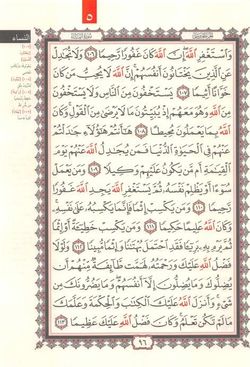 ٥
النساء
وَٱسْتَغْفِرِ ٱللَّهَ إِنَّ ٱللَّهَ كَانَ غَفُورًا رَّحِيمًا ١٠٦ وَلَا تُجَٰدِلْ
عَنِ ٱلَّذِينَ يَخْتَانُونَ أَنفُسَهُمْ إِنَّ ٱللَّهَ لَا يُحِبُّ مَن كَانَ
خَوَّانًا أَثِيمًا ١٠٧ يَسْتَخْفُونَ مِنَ ٱلنَّاسِ وَلَا يَسْتَخْفُونَ
مِنَ ٱللَّهِ وَهُوَ مَعَهُمْ إِذْ يُبَيِّتُونَ مَا لَا يَرْضَىٰ مِنَ ٱلْقَوْلِ وَكَانَ
ٱللَّهُ بِمَا يَعْمَلُونَ مُحِيطًا ١٠٨ هَٰٓأَنتُمْ هَٰٓؤُلَآءِ جَٰدَلْتُمْ
عَنْهُمْ فِى ٱلْحَيَوٰةِ ٱلدُّنْيَا فَمَن يُجَٰدِلُ ٱللَّهَ عَنْهُمْ يَوْمَ
ٱلْقِيَٰمَةِ أَم مَّن يَكُونُ عَلَيْهِمْ وَكِيلًا ١٠٩ وَمَن يَعْمَلْ
سُوٓءًا أَوْ يَظْلِمْ نَفْسَهُۥ ثُمَّ يَسْتَغْفِرِ ٱللَّهَ يَجِدِ ٱللَّهَ غَفُورًا
رَّحِيمًا ١١٠ وَمَن يَكْسِبْ إِثْمًا فَإِنَّمَا يَكْسِبُهُۥ عَلَىٰ نَفْسِهِۦ
وَكَانَ ٱللَّهُ عَلِيمًا حَكِيمًا ١١١ وَمَن يَكْسِبْ خَطِيٓـَٔةً أَوْ إِثْمًا
ثُمَّ يَرْمِ بِهِۦ بَرِيٓـًٔا فَقَدِ ٱحْتَمَلَ بُهْتَٰنًا وَإِثْمًا مُّبِينًا ١١٢ وَلَوْلَا
فَضْلُ ٱللَّهِ عَلَيْكَ وَرَحْمَتُهُۥ لَهَمَّت طَّآئِفَةٌ مِّنْهُمْ أَن
يُضِلُّوكَ وَمَا يُضِلُّونَ إِلَّآ أَنفُسَهُمْ وَمَا يَضُرُّونَكَ مِن
شَىْءٍ وَأَنزَلَ ٱللَّهُ عَلَيْكَ ٱلْكِتَٰبَ وَٱلْحِكْمَةَ وَعَلَّمَكَ
مَا لَمْ تَكُن تَعْلَمُ وَكَانَ فَضْلُ ٱللَّهِ عَلَيْكَ عَظِيمًا ١١٣
٩٦